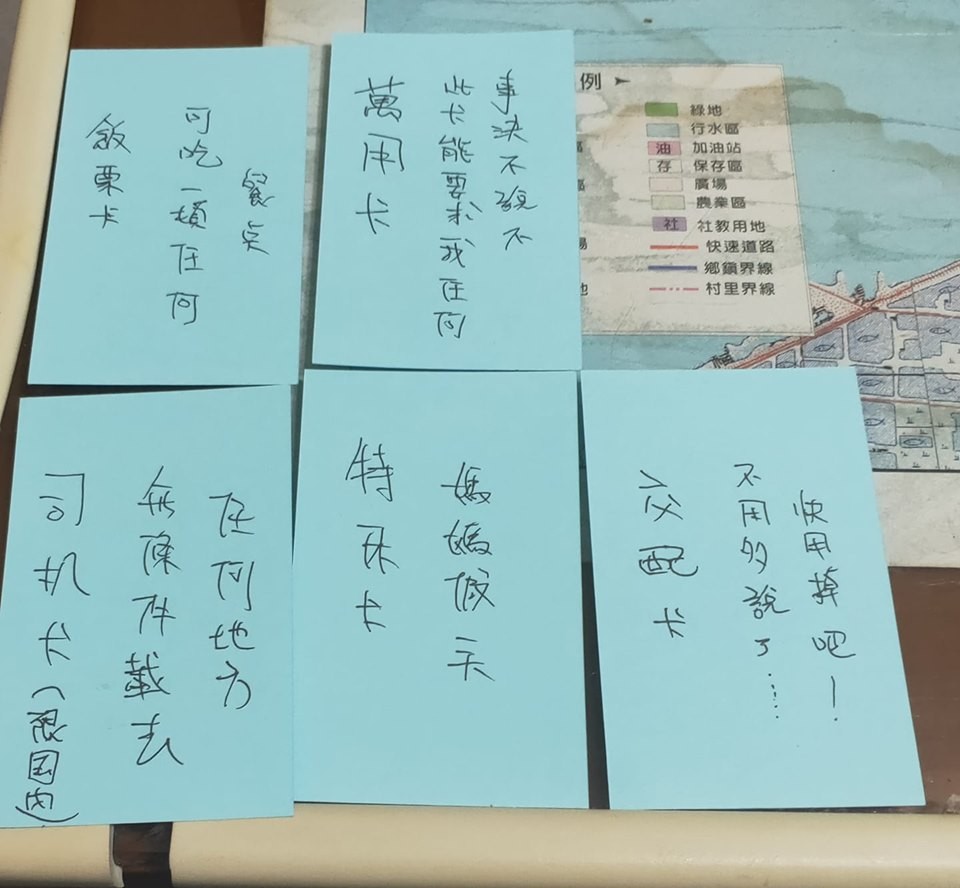 飯票卡
可吃一頓任何
餐点
萬用卡
此卡能要求我任何
事決不說不
司机卡（限国内）
無條件載去
任何地方
特休卡
媽媽假一天
交配卡
不用多說了……
快用掉吧！
例
綠地
行水區
油 加油站
存 保存區
廣場
農業區
社 社教用地
快速道路
鄉鎮界線
村里界線